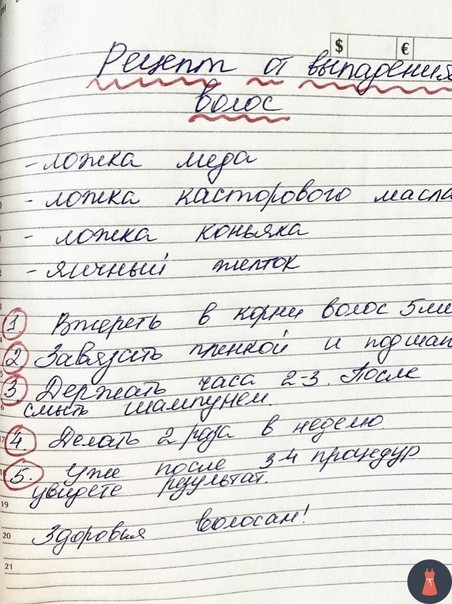 $ €
Рецепт от выпадения
волос
- ложка меда
- ложка касторового масла
- ложка коньяка
- яичный желток
1 Втереть в корни волос 5 ми
2 Завязать пленкой и под шап
3 Держать часа 2-3. После
смыть шампунем.
4. Делать 2 раза в неделю
5. Уже после 3-4 процедур
увидете результат.
19
20 Здоровья волосам!
21